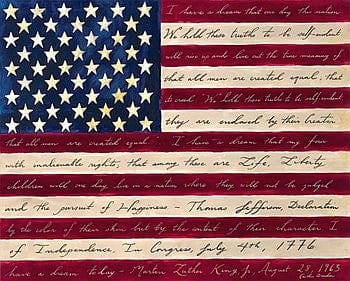 I have a dream that one day this nation
We hold these truths to be self-evident
will rise up and live out the true meaning of
that all men are created equal; that
its creed: We hold these truths to be self-evident
they are endowed by their Creator
that all men are created equal. I have a dream that my four
with inalienable rights, that among these are Life, Liberty
children will one day live in a nation where they will not be judged
and the pursuit of Happiness - Thomas Jefferson, Declaration
by the color of their skin but by the content of their character. I
of Independence, In Congress, July 4th, 1776
have a dream today - Martin Luther King, Jr, August 28, 1963